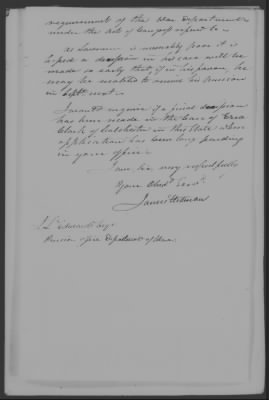 requirement of the War Department
under the Act of Congress refer'd to
As Lawrence is miserably poor it is
hoped a decision in his case will be
made so early that, if in his favour, he
may be enabled to receive his pension
in Septr next.
I want to enquire if a final decision
has been made in the Case of Ezra
Clark of Colchester in this State whose
application has been long pending
in your office
I am Sir very respectfully
Your Obedt Servt
James
J L Edwards Esqr
Pension Office Department of War